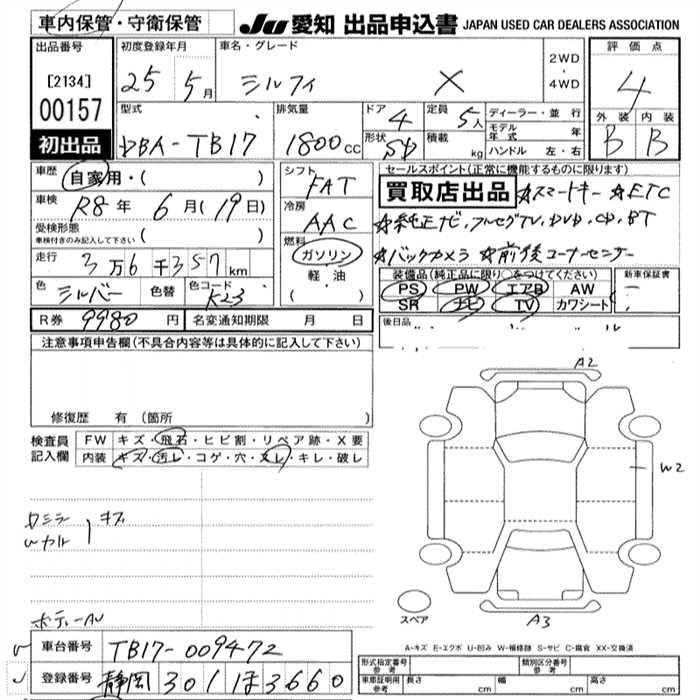 車内保管・守衛保管
JU 愛知 出品申込書 JAPAN USED CAR DEALERS ASSOCIATION
出品番号
[2134]
00157
初出品
初度登録年月
25 5月
車名・グレード
シルフィ X
2WD
・
4WD
評価点
4
外装 内装
B B
型式
DBA-TB17
排気量
1800cc
ドア 4
形状 SD
定員 5人
積載 kg
ディーラー・並行
モデル年式 年
ハンドル 左・右
車歴 自家用・( )
車検 R8年 6月(19日)
受検形態
車検付きのみ記入して下さい ( )
走行 3万6千357km
色 シルバー 色替 色コード K23
シフト
FAT
冷房
AAC
燃料
ガソリン
軽油
(・ )
セールスポイント(正常に機能するものに限り)
買取店出品 ☆スマートキー ☆ETC
☆純正ナビ,フルセグTV,DVD,CD,BT
☆バックカメラ ☆前後コーナーセンサー
装備品(純正品に限り○をつけてください)
PS PW エアB AW
SR ナビ TV カワシート
新車保証書
後日品
R券 9980円 名変通知期限 月 日
注意事項申告欄(不具合内容等は具体的に記入して下さい)
修復歴 有 (箇所 )
検査員記入欄
FW キズ・飛石・ヒビ割・リペア跡・X要
内装 キズ・汚レ・コゲ・穴・スレ・キレ・破レ
キズ
A2
W2
スペア
A3
A-キズ E-エクボ U-凹み W-補修跡 S-サビ C-腐食 XX-交換済
車台番号 TB17-009472
登録番号 静岡 301 ほ 3660
型式指定番号 類別区分番号
車庫証明用記入欄 長さ cm 幅 cm 高さ cm